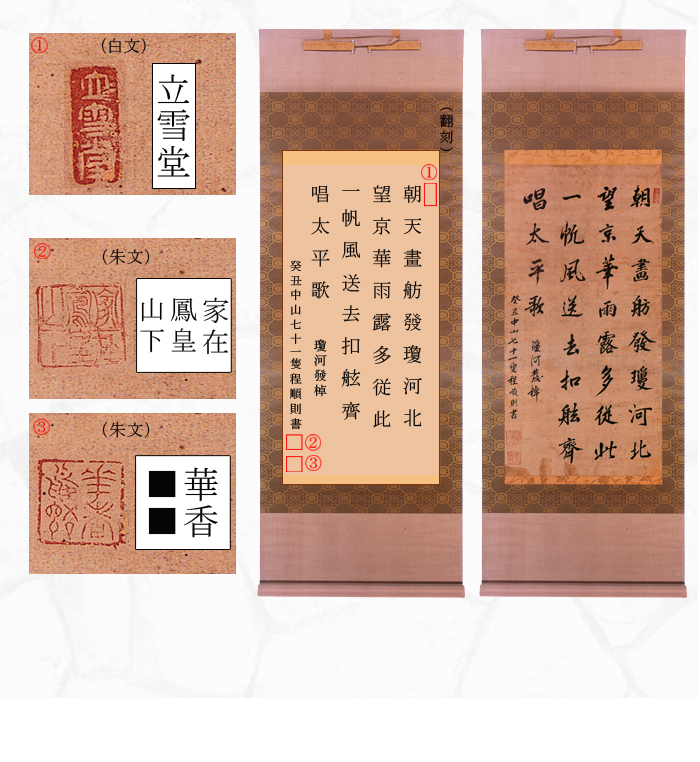 ①
（白文）
立雪堂
②
（朱文）
家在
鳳皇
山下
③
（朱文）
華香
■■
（翻刻）
①
朝天畫舫發瓊河北
望京華雨露多従此
一帆風送去扣舷齊
唱太平歌
瓊河發棹
癸丑中山七十一隻程順則書
②
③
朝天畫舫發瓊河北
望京華雨露多従此
一帆風送去扣舷齊
唱太平歌
瓊河發棹
癸丑中山七十一隻程順則書